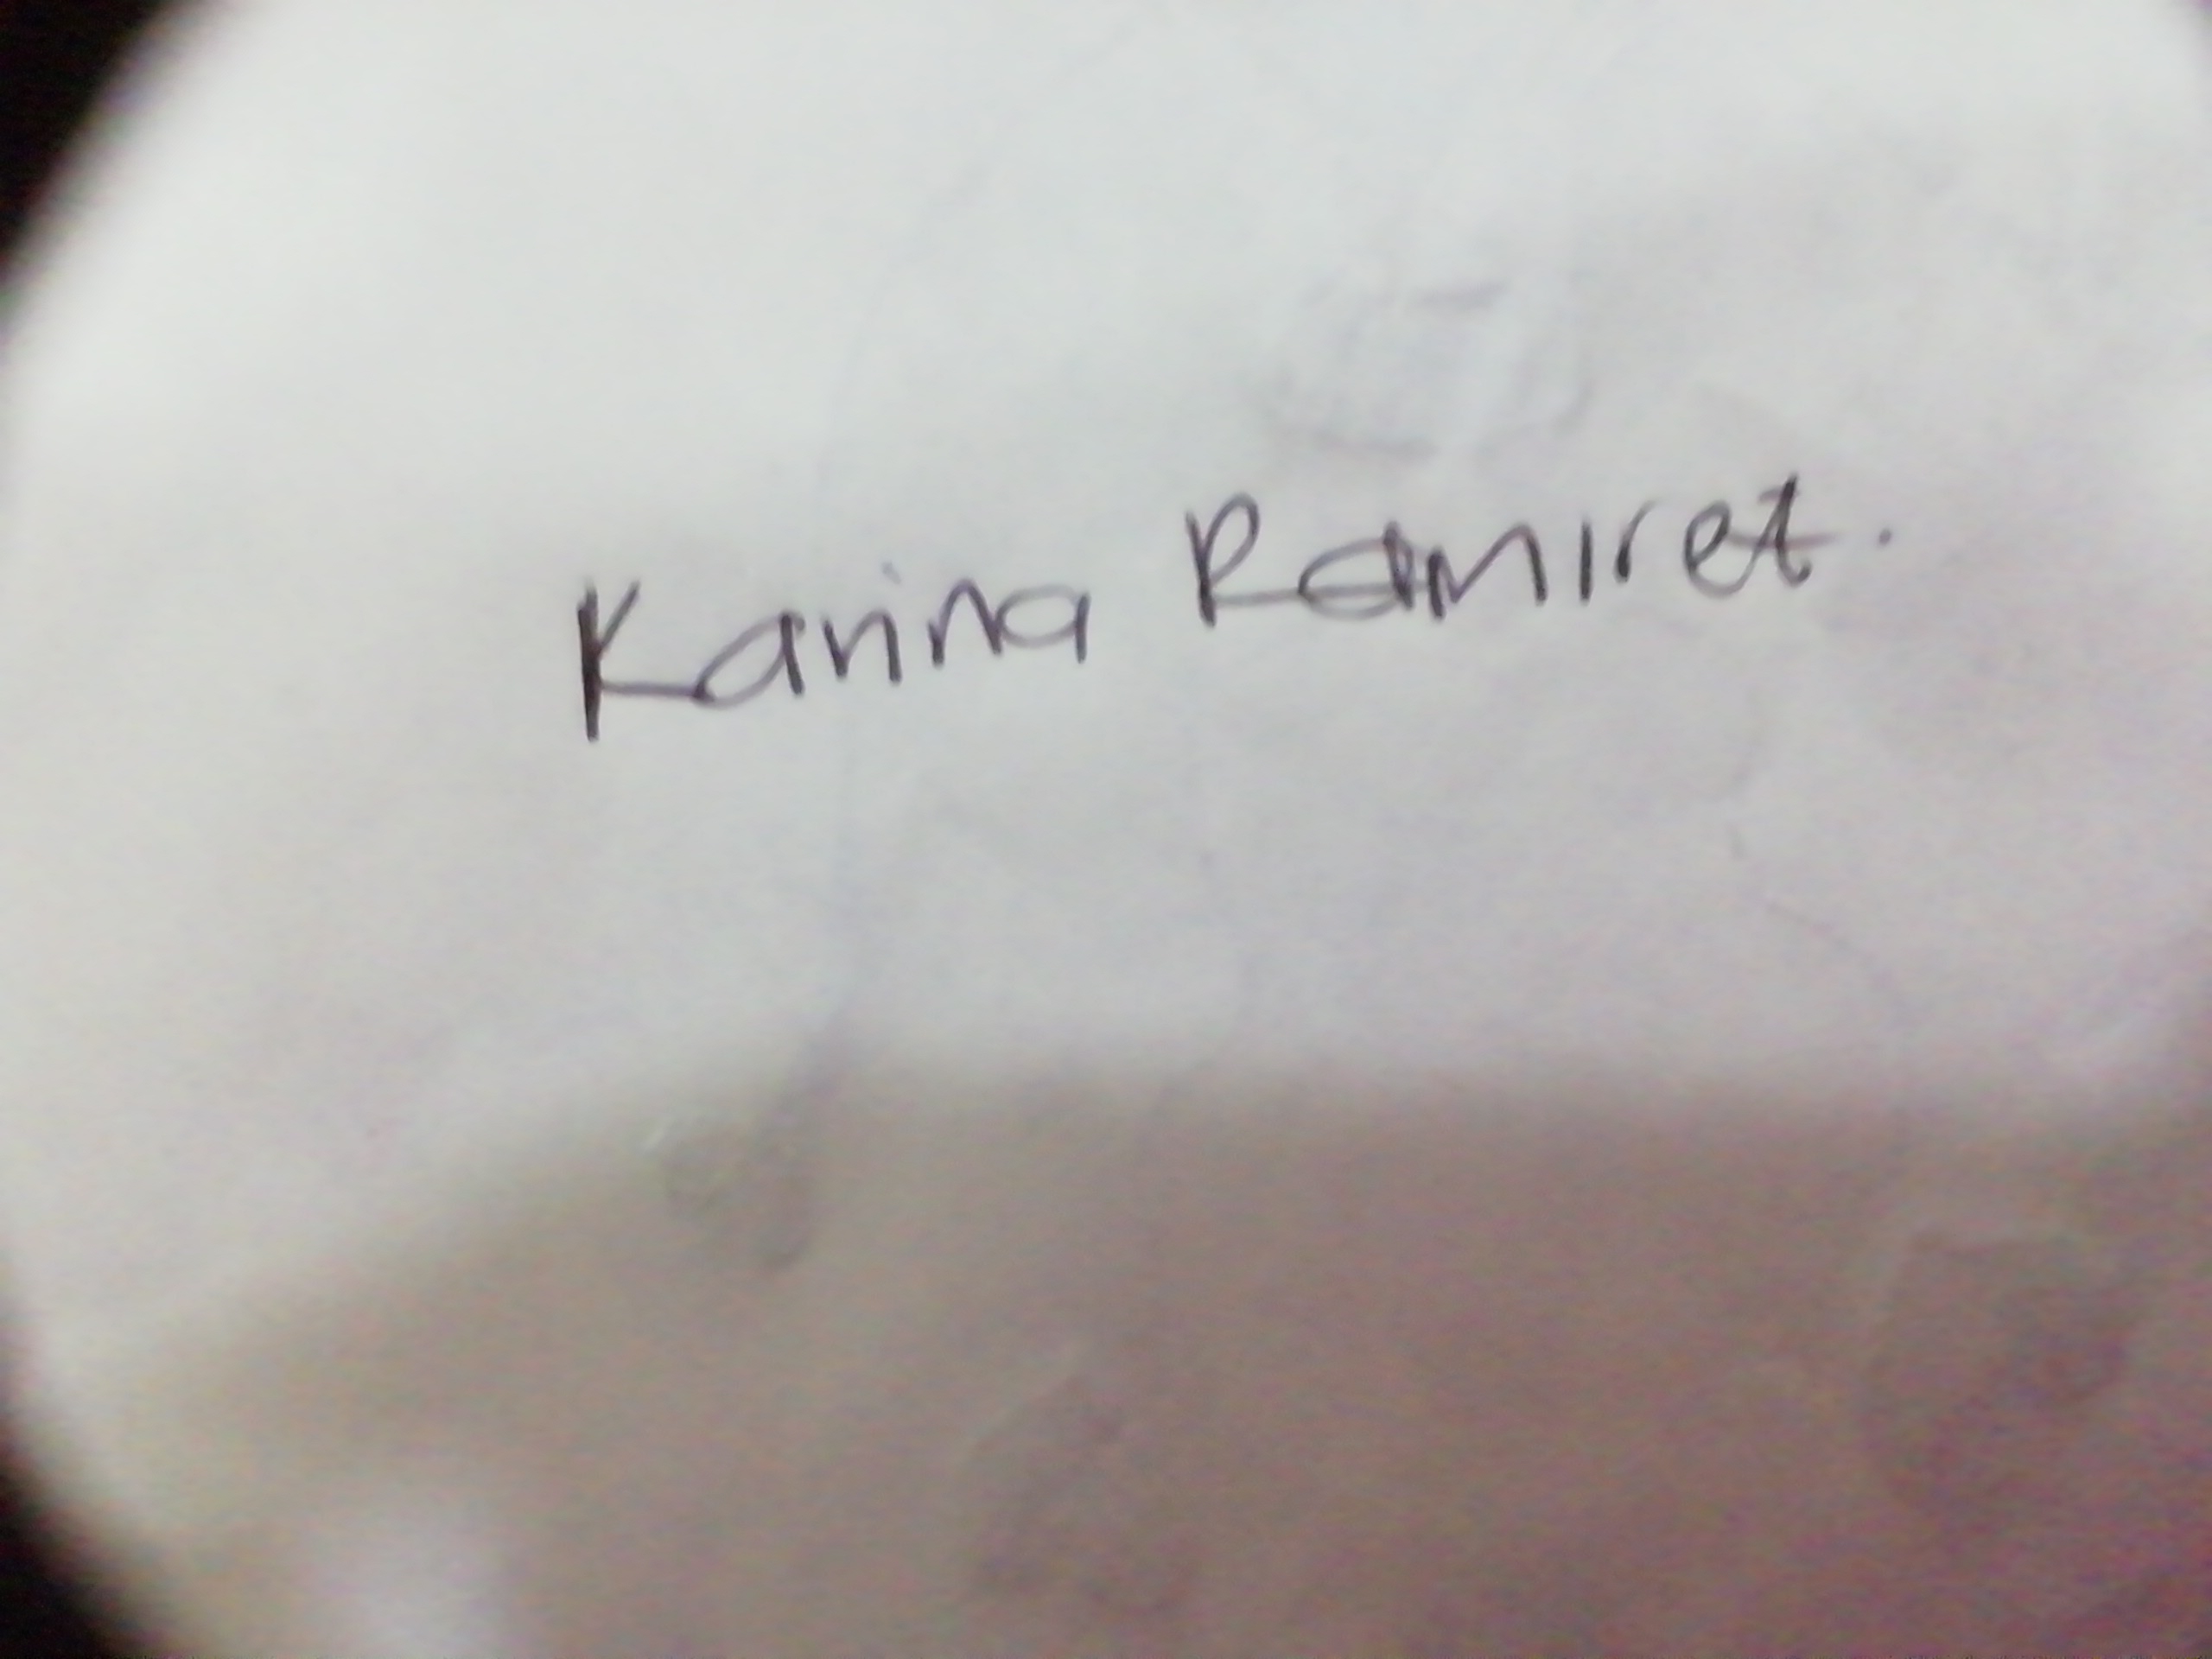 Karina Ramirez.